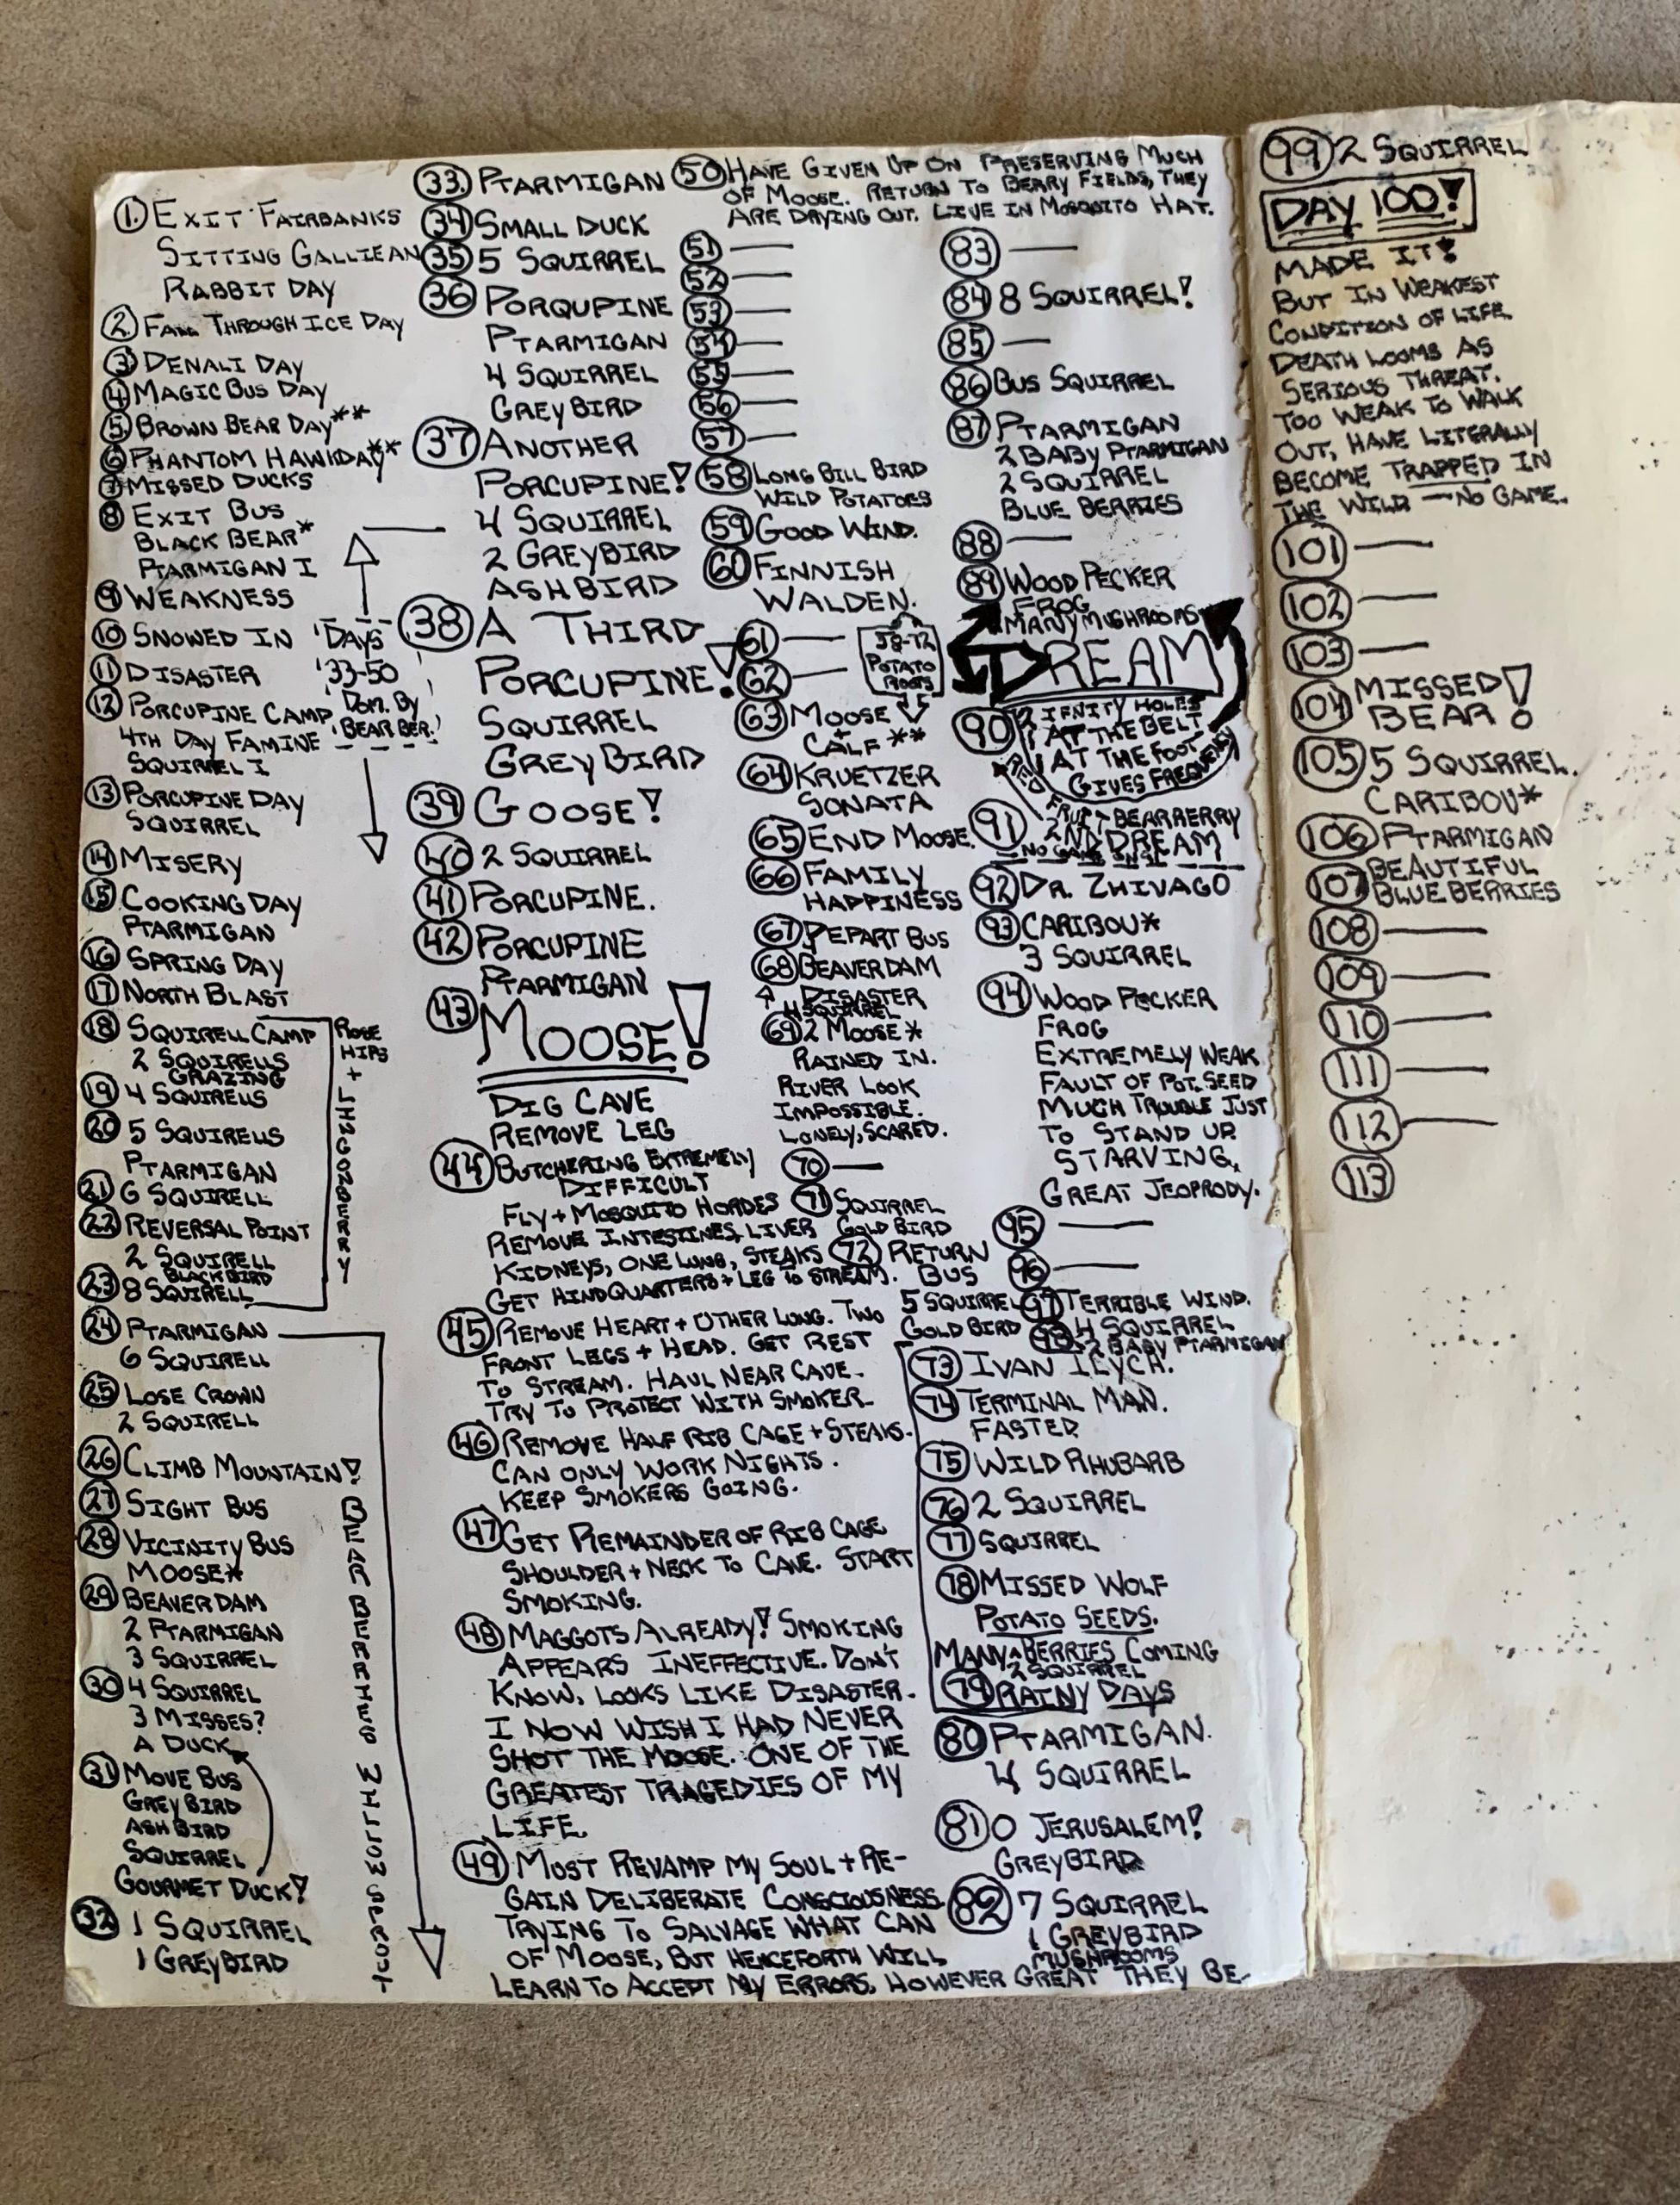 1. EXIT FAIRBANKS
SITTING GALLIEAN
RABBIT DAY
2. FALL THROUGH ICE DAY
3 DENALI DAY
4 MAGIC BUS DAY
5 BROWN BEAR DAY**
6 PHANTOM HAWKDAY**
7 MISSED DUCKS
8 EXIT BUS
BLACK BEAR*
PTARMIGAN I
9 WEAKNESS
10 SNOWED IN
11 DISASTER
12 PORCUPINE CAMP
4TH DAY FAMINE
SQUIRREL I
13 PORCUPINE DAY
SQUIRREL
14 MISERY
15 COOKING DAY
PTARMIGAN
16 SPRING DAY
17 NORTH BLAST
18 SQUIRELL CAMP
2 SQUIRELLS
GRAZING
19 4 SQUIRELLS
20 5 SQUIRELLS
PTARMIGAN
21 6 SQUIRELL
22 REVERSAL POINT
2 SQUIRELL
BLACKBIRD
23 8 SQUIRELL
ROSE
HIPS
+
LINGONBERRY
24 PTARMIGAN
6 SQUIRELL
25 LOSE CROWN
2 SQUIRELL
26 CLIMB MOUNTAIN!
27 SIGHT BUS
28 VICINITY BUS
MOOSE*
29 BEAVER DAM
2 PTARMIGAN
3 SQUIRREL
30 4 SQUIRREL
3 MISSES?
A DUCK
31 MOVE BUS
GREY BIRD
ASH BIRD
SQUIRREL
GOURMET DUCK!
32 1 SQUIRREL
1 GREYBIRD
BEAR BERRIES WILLOW SPROUT
DAYS
33-50
DOM. BY
BEAR BER.
33. PTARMIGAN
34 SMALL DUCK
35 5 SQUIRREL
36 PORQUPINE
PTARMIGAN
4 SQUIRREL
GREYBIRD
37 ANOTHER
PORCUPINE!
4 SQUIRREL
2 GREYBIRD
ASHBIRD
38 A THIRD
PORCUPINE!
SQUIRREL
GREYBIRD
39 GOOSE!
40 2 SQUIRREL
41 PORCUPINE.
42 PORCUPINE
PTARMIGAN
43 MOOSE!
DIG CAVE
REMOVE LEG
44 BUTCHERING EXTREMELY
DIFFICULT
FLY + MOSQUITO HORDES
REMOVE INTESTINES, LIVER
KIDNEYS, ONE LUNG, STEAKS
GET HINDQUARTERS + LEG TO STREAM.
45 REMOVE HEART + OTHER LUNG. TWO
FRONT LEGS + HEAD. GET REST
TO STREAM. HAUL NEAR CAVE.
TRY TO PROTECT WITH SMOKER.
46 REMOVE HALF RIB CAGE + STEAKS.
CAN ONLY WORK NIGHTS.
KEEP SMOKERS GOING.
47 GET REMAINDER OF RIB CAGE
SHOULDER + NECK TO CAVE. START
SMOKING.
48 MAGGOTS ALREADY! SMOKING
APPEARS INEFFECTIVE. DON'T
KNOW, LOOKS LIKE DISASTER.
I NOW WISH I HAD NEVER
SHOT THE MOOSE. ONE OF THE
GREATEST TRAGEDIES OF MY
LIFE.
49 MUST REVAMP MY SOUL + RE-
GAIN DELIBERATE CONSCIOUSNESS.
TRYING TO SALVAGE WHAT CAN
OF MOOSE, BUT HENCEFORTH WILL
LEARN TO ACCEPT MY ERRORS, HOWEVER GREAT THEY BE.
50 HAVE GIVEN UP ON PRESERVING MUCH
OF MOOSE. RETURN TO BERRY FIELDS, THEY
ARE DRYING OUT. LIVE IN MOSQUITO HAT.
51 —
52 —
53 —
54 —
55 —
56 —
57 —
58 LONG BILL BIRD
WILD POTATOES
59 GOOD WIND.
60 FINNISH
WALDEN.
61 —
62 —
58-72
POTATO
ROOTS
63 MOOSE
+
CALF**
64 KRUETZER
SONATA
65 END MOOSE.
66 FAMILY
HAPPINESS
67 DEPART BUS
68 BEAVER DAM
DISASTER
4 SQUIRREL
69 2 MOOSE*
RAINED IN.
RIVER LOOK
IMPOSSIBLE.
LONELY, SCARED.
70 —
71 SQUIRREL
GOLD BIRD
72 RETURN
BUS
5 SQUIRREL
GOLD BIRD
73 IVAN ILYCH.
74 TERMINAL MAN.
FASTED
75 WILD RHUBARB
76 2 SQUIRREL
77 SQUIRREL
78 MISSED WOLF
POTATO SEEDS.
MANY BERRIES COMING
2 SQUIRREL
79 RAINY DAYS
80 PTARMIGAN.
4 SQUIRREL
81 O JERUSALEM!
GREYBIRD
82 7 SQUIRREL
1 GREYBIRD
MUSHROOMS
83 —
84 8 SQUIRREL!
85 —
86 BUS SQUIRREL
87 PTARMIGAN
2 BABY PTARMIGAN
2 SQUIRREL
BLUE BERRIES
88 —
89 WOOD PECKER
FROG
MANY MUSHROOMS
DREAM
90
AT THE BELT
AT THE FOOT
GIVES
91 2ND DREAM
BEARBERRY
92 DR. ZHIVAGO
93 CARIBOU*
3 SQUIRREL
94 WOOD PECKER
FROG
EXTREMELY WEAK
FAULT OF POT. SEED
MUCH TROUBLE JUST
TO STAND UP.
STARVING.
GREAT JEOPRODY.
95 —
96 —
97 TERRIBLE WIND.
4 SQUIRREL
98 2 BABY PTARMIGAN
99 2 SQUIRREL
DAY 100!
MADE IT!
BUT IN WEAKEST
CONDITION OF LIFE.
DEATH LOOMS AS
SERIOUS THREAT.
TOO WEAK TO WALK
OUT, HAVE LITERALLY
BECOME TRAPPED IN
THE WILD — NO GAME.
101 —
102 —
103 —
104 MISSED
BEAR!
105 5 SQUIRREL.
CARIBOU*
106 PTARMIGAN
107 BEAUTIFUL
BLUE BERRIES
108 —
109 —
110 —
111 —
112 —
113